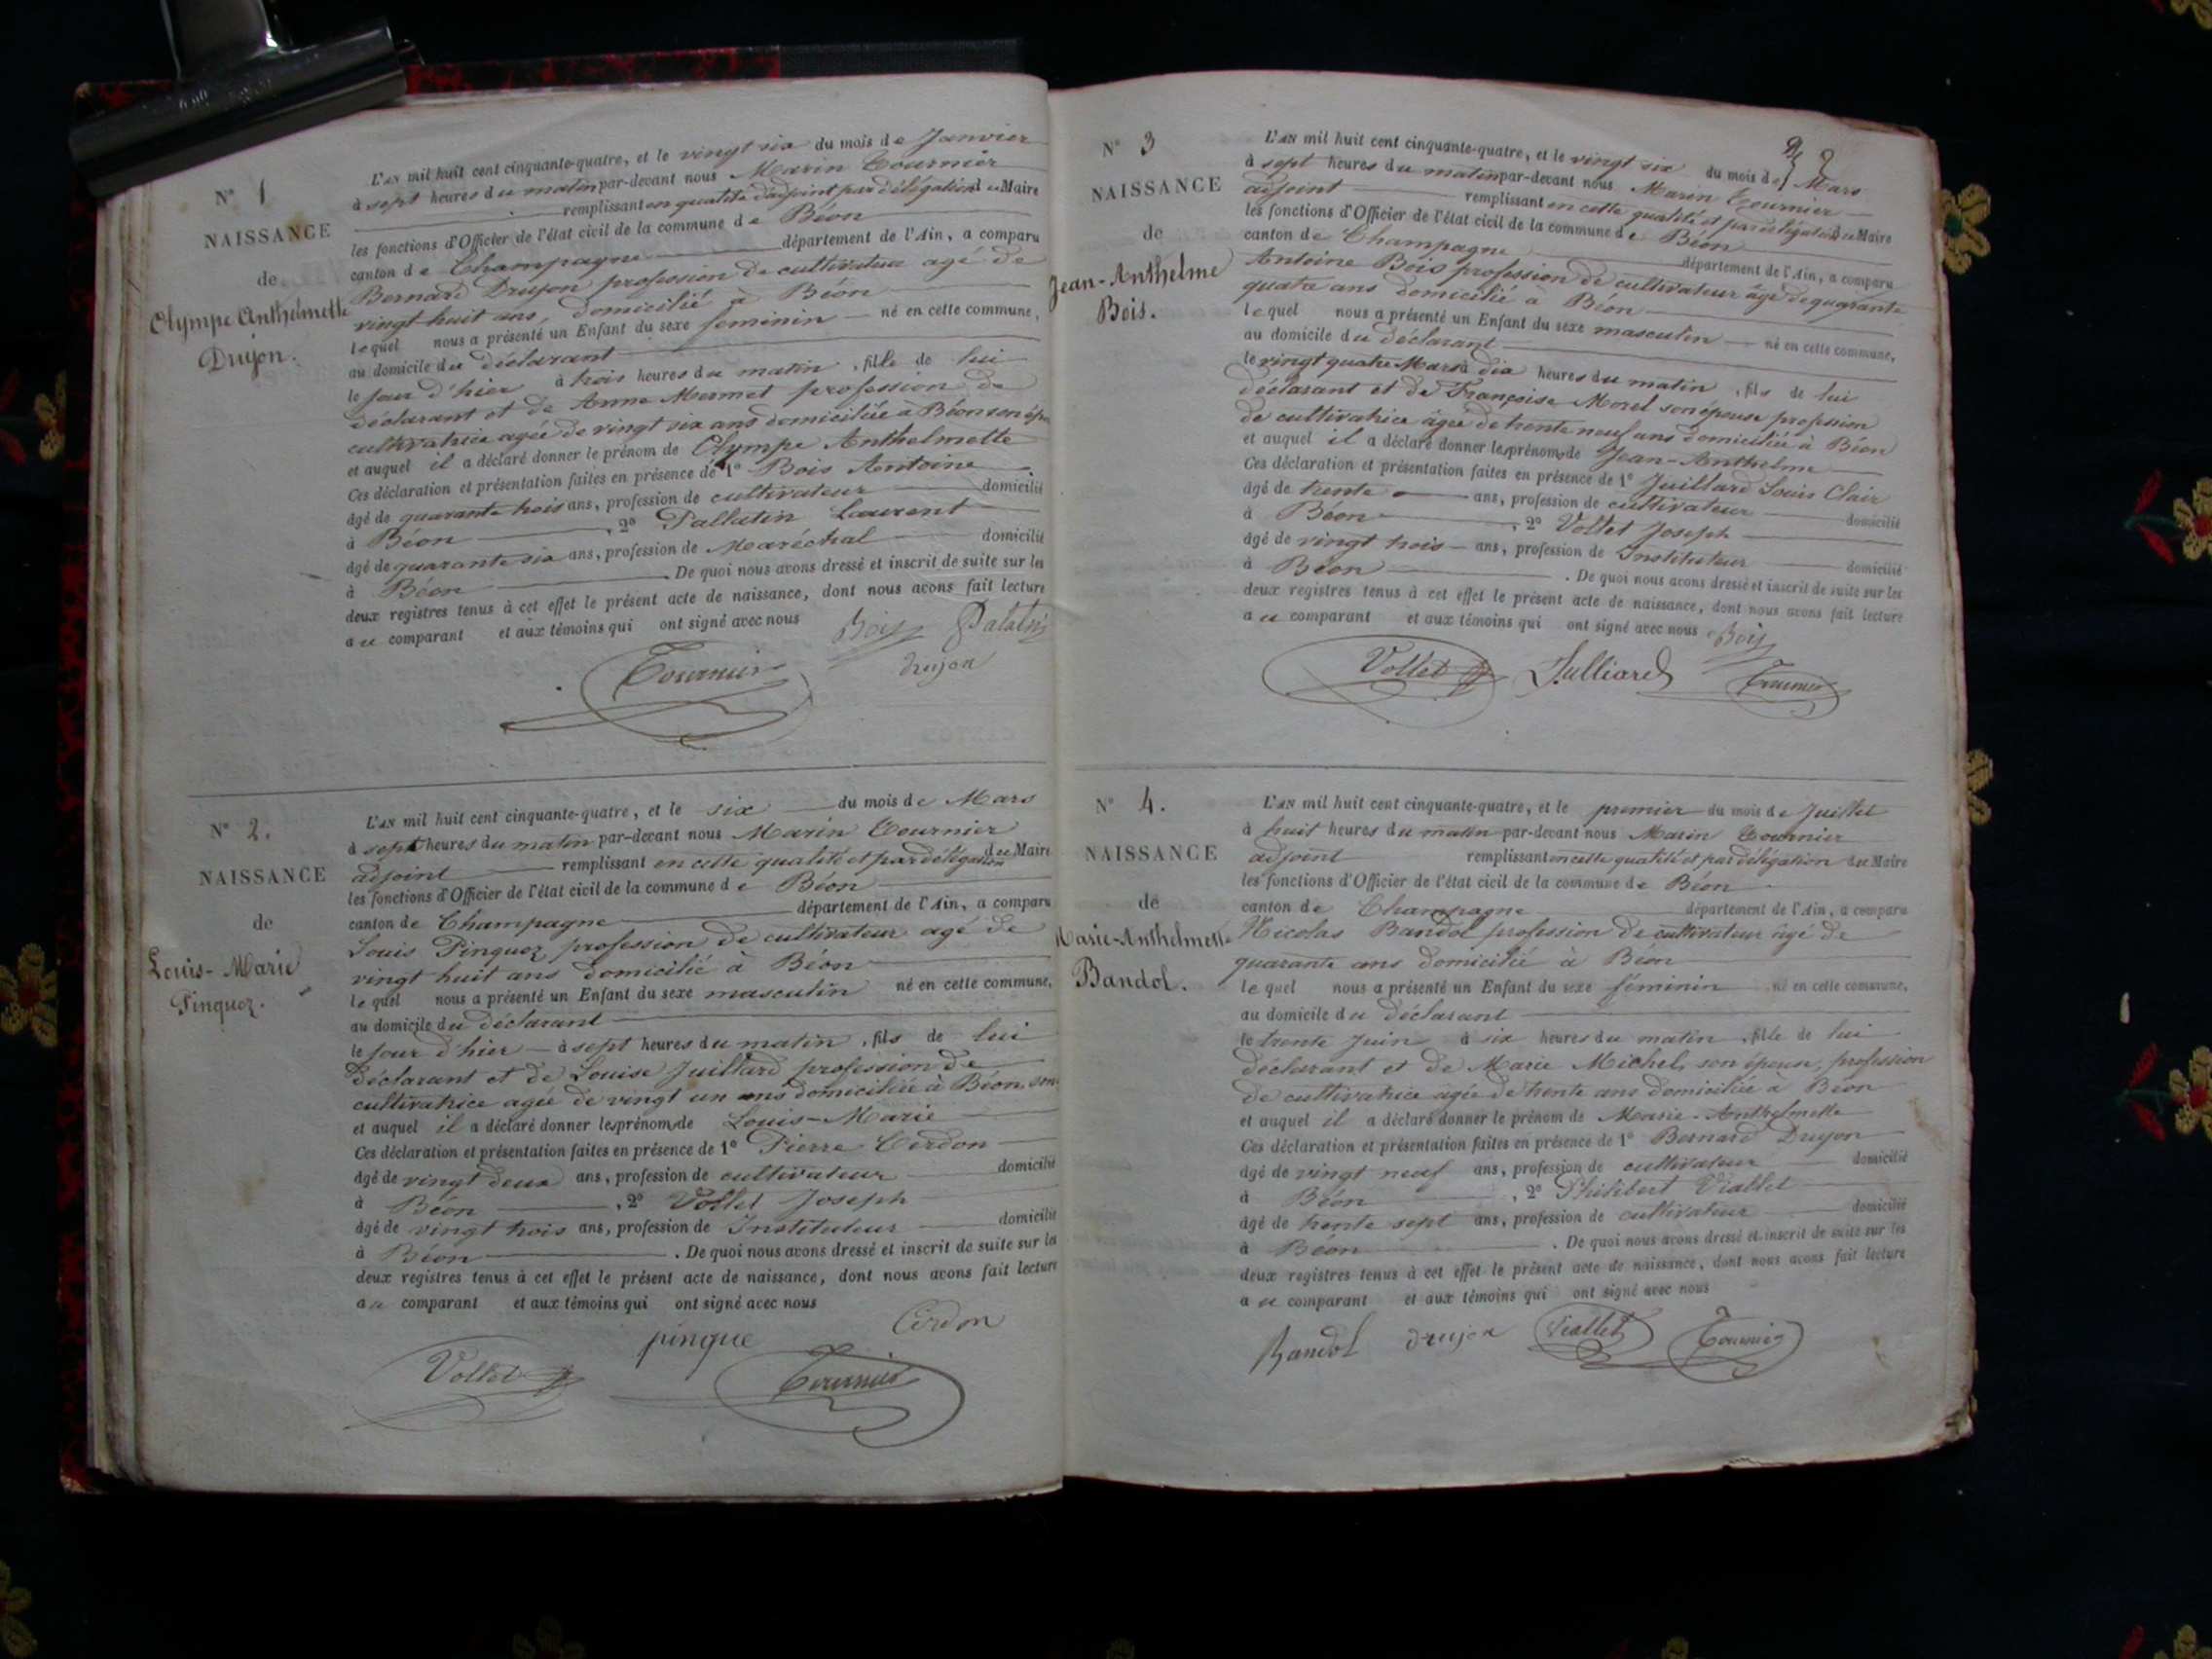 N° 1
NAISSANCE
de
Olympe Anthelmette
Drujon.
L'AN mil huit cent cinquante-quatre, et le vingt six du mois de Janvier
à sept heures du matin par-devant nous Marin Tournier
remplissant en qualité d'adjoint par délégation du Maire
les fonctions d'Officier de l'état civil de la commune de Béon
canton de Champagne département de l'Ain, a comparu
Bernard Drujon profession de cultivateur agé de
vingt huit ans, domicilié à Béon
lequel nous a présenté un Enfant du sexe feminin né en cette commune,
au domicile du déclarant
le jour d'hier à trois heures du matin, fille de lui
déclarant et de Anne Mermet profession de
cultivatrice agée de vingt six ans domiciliée à Béon son
et auquel il a déclaré donner le prénom de Olympe Anthelmette
Ces déclaration et présentation faites en présence de 1° Bois Antoine
âgé de quarante trois ans, profession de cultivateur domicilié
à Béon, 2° Pallatin Laurent
âgé de quarante six ans, profession de Maréchal domicilié
à Béon. De quoi nous avons dressé et inscrit de suite sur les
deux registres tenus à cet effet le présent acte de naissance, dont nous avons fait lecture
au comparant et aux témoins qui ont signé avec nous
Bois Palatin
Tournier drujon
N° 2.
NAISSANCE
de
Louis-Marie
Pinquez.
L'AN mil huit cent cinquante-quatre, et le six du mois de Mars
à sept heures du matin par-devant nous Marin Tournier
adjoint remplissant en cette qualité et par délégation du Maire
les fonctions d'Officier de l'état civil de la commune de Béon
canton de Champagne département de l'Ain, a comparu
Louis Pinquez, profession de cultivateur agé de
vingt huit ans domicilié à Béon
lequel nous a présenté un Enfant du sexe masculin né en cette commune,
au domicile du déclarant
le jour d'hier à sept heures du matin, fils de lui
déclarant et de Louise Juillard profession de
cultivatrice agée de vingt un ans domiciliée à Béon son
et auquel il a déclaré donner les prénoms de Louis-Marie
Ces déclaration et présentation faites en présence de 1° Pierre Cerdon
âgé de vingt deux ans, profession de cultivateur domicilié
à Béon, 2° Vollet Joseph
âgé de vingt trois ans, profession de Instituteur domicilié
à Béon. De quoi nous avons dressé et inscrit de suite sur les
deux registres tenus à cet effet le présent acte de naissance, dont nous avons fait lecture
au comparant et aux témoins qui ont signé avec nous
pinque Cerdon
Vollet Tournier
N° 3
NAISSANCE
de
Jean-Anthelme
Bois.
L'AN mil huit cent cinquante-quatre, et le vingt six du mois de Mars
à sept heures du matin par-devant nous Marin Tournier
adjoint remplissant en cette qualité et par délégation du Maire
les fonctions d'Officier de l'état civil de la commune de Béon
canton de Champagne département de l'Ain, a comparu
Antoine Bois profession de cultivateur âgé de quarante
quatre ans domicilié à Béon
lequel nous a présenté un Enfant du sexe masculin né en cette commune,
au domicile du déclarant
le vingt quatre Mars à dix heures du matin, fils de lui
déclarant et de Françoise Morel son épouse profession
de cultivatrice âgée de trente neuf ans domiciliée à Béon
et auquel il a déclaré donner les prénoms de Jean-Anthelme
Ces déclaration et présentation faites en présence de 1° Juillard Louis Clair
âgé de trente ans, profession de cultivateur domicilié
à Béon, 2° Vollet Joseph
âgé de vingt trois ans, profession de Instituteur domicilié
à Béon. De quoi nous avons dressé et inscrit de suite sur les
deux registres tenus à cet effet le présent acte de naissance, dont nous avons fait lecture
au comparant et aux témoins qui ont signé avec nous Bois
Vollet Julliard Tournier
N° 4.
NAISSANCE
de
Marie-Anthelmette
Bandol.
L'AN mil huit cent cinquante-quatre, et le premier du mois de Juillet
à huit heures du matin par-devant nous Marin Tournier
adjoint remplissant en cette qualité et par délégation du Maire
les fonctions d'Officier de l'état civil de la commune de Béon
canton de Champagne département de l'Ain, a comparu
Nicolas Bandol profession de cultivateur âgé de
quarante ans domicilié à Béon
lequel nous a présenté un Enfant du sexe féminin né en cette commune,
au domicile du déclarant
le trente Juin à six heures du matin, fille de lui
déclarant et de Marie Michel, son épouse, profession
de cultivatrice âgée de trente ans domiciliée à Béon
et auquel il a déclaré donner le prénom de Marie-Anthelmette
Ces déclaration et présentation faites en présence de 1° Bernard Drujon
âgé de vingt neuf ans, profession de cultivateur domicilié
à Béon, 2° Philibert Viallet
âgé de trente sept ans, profession de cultivateur domicilié
à Béon. De quoi nous avons dressé et inscrit de suite sur les
deux registres tenus à cet effet le présent acte de naissance, dont nous avons fait lecture
au comparant et aux témoins qui ont signé avec nous
Bandol drujon Viallet Tournier